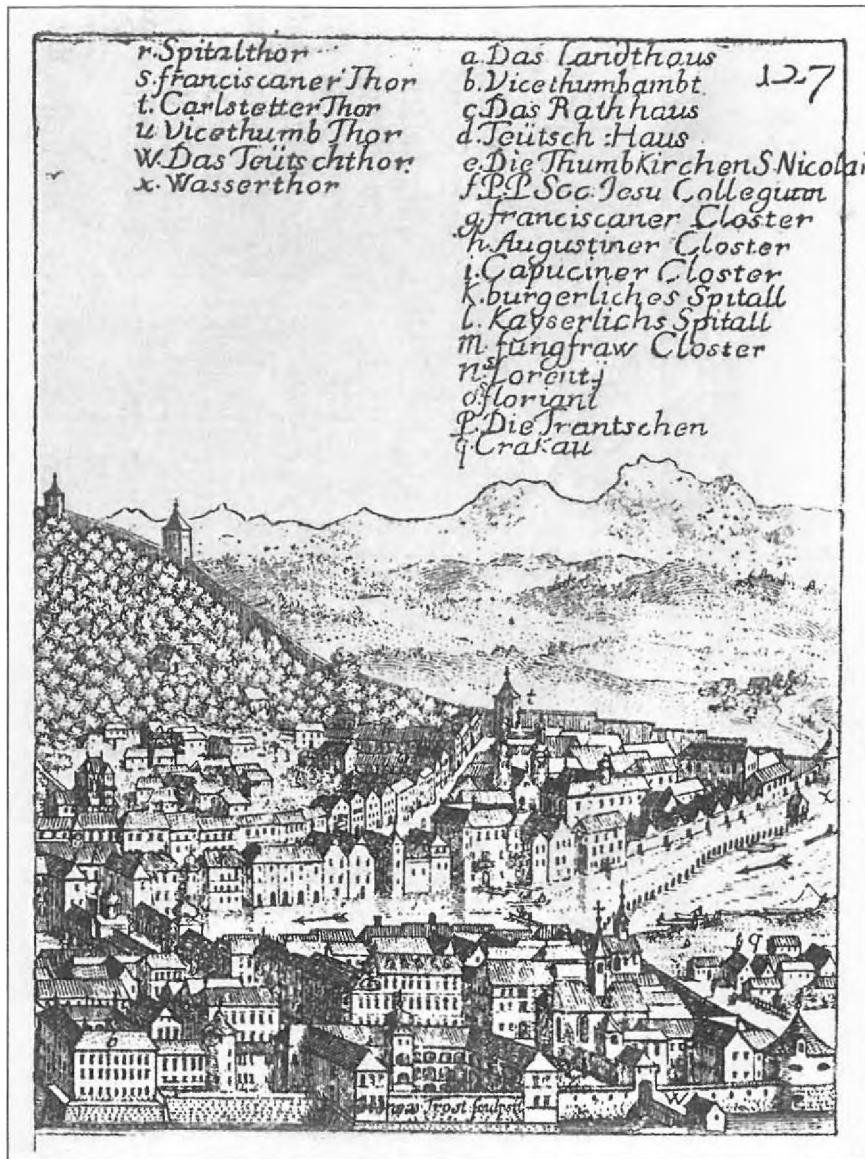 r. Spitalthor
s. franciscaner Thor
t. Carlstetter Thor
u Vicethumb Thor
W. Das Teütschthor.
x. Wasserthor
a. Das Landthaus
b. Vicethumbambt.
c. Das Rathhaus
d. Teütsch: Haus
e. Die Thumbkirchen S. Nicolai
f. P.P. Soc. Jesu Collegium
g. franciscaner Closter
h. Augustiner Closter
i. Capuciner Closter
k. burgerliches Spitall
l. Kayserlichs Spitall
m. fungfraw Closter
n. S. Lorentj
o. S. floriani
p. Die Trantschen
q. Crakau
127
t
x
q
b
W
Trost sculpsit